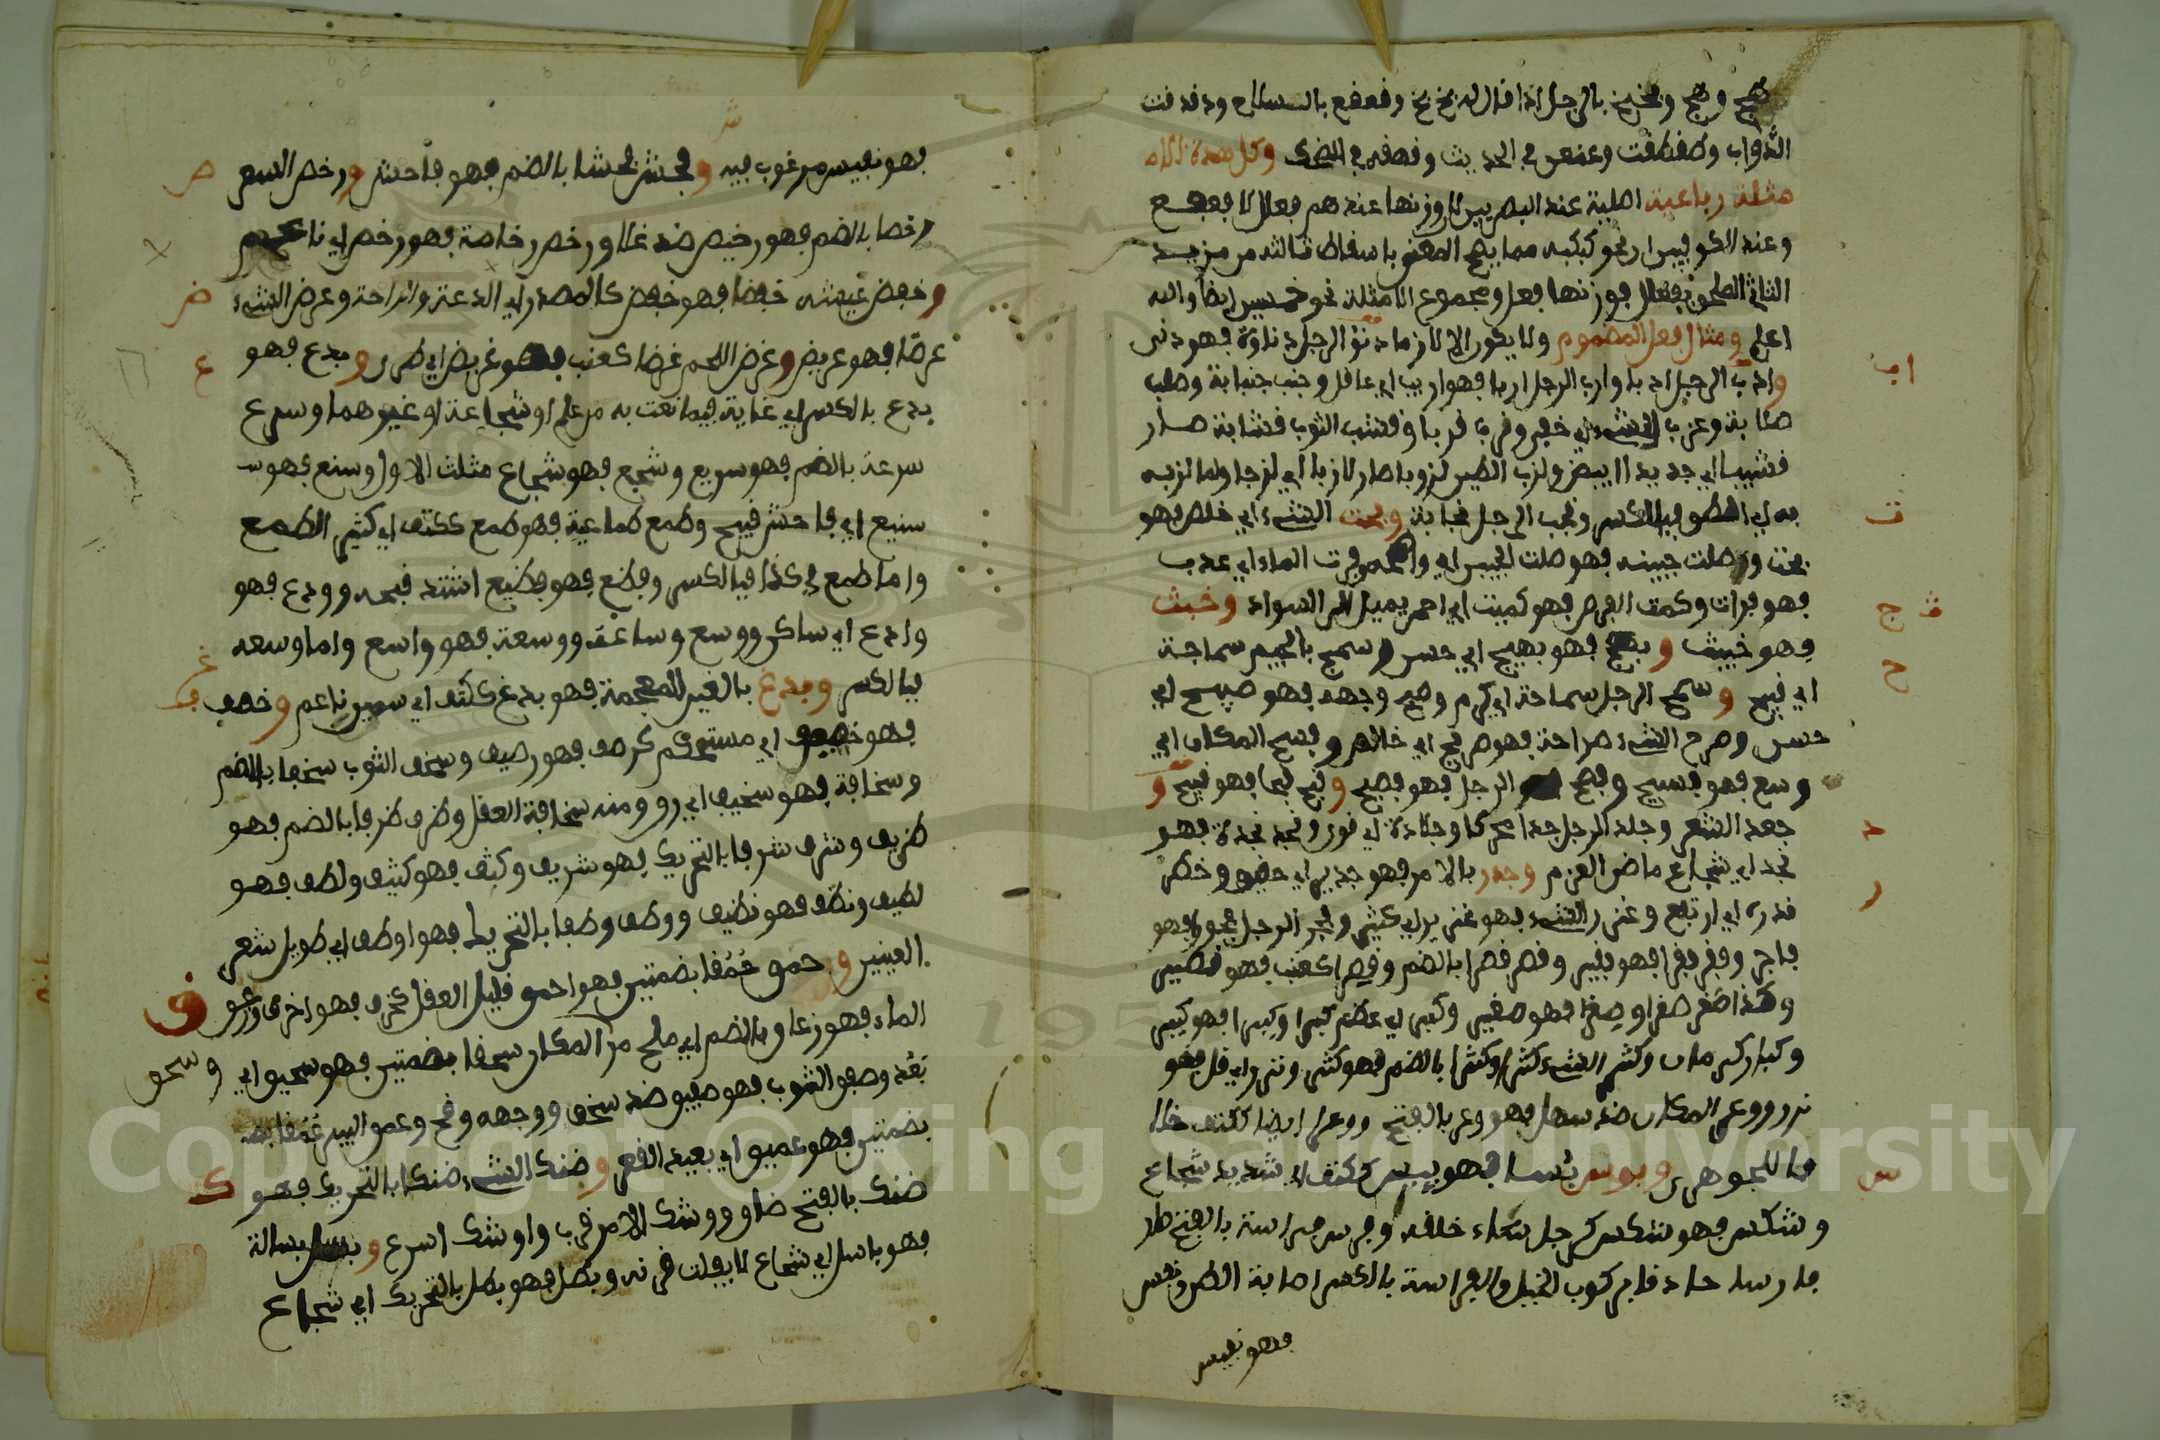 وبخبخ بالرجل اذا قال له بخ بخ وقعقع بالسلاح ودقدقت
الدواب وطقطقت وعنعن في الحديث وقهقه في الضحك وكل هذه الا
مثلة رباعية اصلية عند البصريين لان وزنها عندهم فعلل لا فعفع
وعند الكوفيين ان نحو كبكبه مما يصح المعنى باسقاط ثالثه من مزيد
الثلاثي الملحق بفعلل فوزنها فعل ومجموع الامثلة نحو خمسين ايضا والله
اعلم ومثال فعل المضموم ولا يكون الا لازما دنؤ الرجل دناءة فهو دنى
وادب الرجل ادبا وارب الرجل اربا فهو اريب اي عاقل وجنب جنابة وصلب
صلابة وعزب الشيء اي خفي وقرب قربا وقشب الثوب قشابة صار
قشيبا اي جديدا ابيض ولزب الطين لزوبا صار لازبا اي لزجا واما لزب
به اي لصق فبالكسر ونجب الرجل نجابة وبحت الشيء اي خلص فهو
بحت وصلت جبينه فهو صلت الجبين اي واضحه وفرت الماء اي عذب
فهو فرات وكمت الفرس فهو كميت اي احمر يميل الى السواد وخبث
فهو خبيث وبهج فهو بهيج اي حسن وسمج بالجيم سماجة
اي قبح وسمح الرجل سماحة اي كرم وصبح وجهه فهو صبيح اي
حسن وصرح الشيء صراحة فهو صريح اي خالص وفسح المكان اي
وسع فهو فسيح وفصح الرجل فهو فصيح وقبح قبحا فهو قبيح و
جعد الشعر وجلد الرجل جلدا محركا وجلادة اي قوي ونجد نجدة فهو
نجد اي شجاع ماضي العزم وجدر بالامر فهو جدير اي حقيق وخطر
قدره اي ارتفع وغزر الشيء فهو غزير اي كثير وفجر الرجل فجورا فهو
فاجر وفقر فقرا فهو فقير وقصر قصرا بالضم وقصرا كعنب فهو قصير
وكذا صغر صغرا وصغرا فهو صغير وكبر اي عظم كبرا وكبرا فهو كبير
وكبار كرمان وكثر الشيء كثرا وكثرا بالضم فهو كثير ونزر اي قل فهو
نزر ووعر المكان ضد سهل فهو وعر بالفتح ووعر ايضا ككتف خلا
فا للجوهري وبوس بئسا فهو بئيس ككتف اي شديد شجاع
وشكس فهو شكس كرجل ساء خلقه وفرس فراسة بالفتح صار
فارسا حاذقا بركوب الخيل والفراسة بالكسر اصابة الظن ونفس
فهو نفيس
اب
ت
ث ج
ح
د
ر
س
فهو نفيس مرغوب فيه وفحش فحشا بالضم فهو فاحش ورخص السعر
رخصا بالضم فهو رخيص ضد غلا ورخص رخاصة فهو رخص اي ناعم
وخفض عيشه خفضا فهو خفض كالمصدر اي الدعة والراحة وعرض الشيء
عرضا فهو عريض وغرض اللحم غرضا كعنب فهو غريض اي طري وبدع فهو
بدع بالكسر اي غاية فيما نعت به من علم او شجاعة او غيرهما وسرع
سرعة بالضم فهو سريع وشجع فهو شجاع مثلث الاول وشنع فهو
شنيع اي فاحش قبيح وطمع طماعية فهو طمع ككتف اي كثير الطمع
واما طمع في كذا فبالكسر وفظع فهو فظيع اشتد قبحه وودع فهو
وادع اي ساكن ووسع وساعة ووسعة فهو واسع واما وسعه
فبالكسر وبدغ بالغين المعجمة فهو بدغ ككتف اي سمين ناعم وخصف
فهو خصيف اي مستحكم كرصف فهو رصيف وسخف الثوب سخفا بالضم
وسخافة فهو سخيف اي رق ومنه سخافة العقل وظرف ظرفا بالضم فهو
ظريف وشرف شرفا بالتحريك فهو شريف وكثف فهو كثيف ولطف فهو
لطيف ونظف فهو نظيف ووطف وطفا بالتحريك فهو اوطف اي طويل شعر
العينين وحمق حمقا بضمتين فهو احمق قليل العقل كخرق فهو اخرق وزعق
الماء فهو زعاق بالضم اي ملح مر المكان سحقا بضمتين فهو سحيق اي
بعد وصفق الثوب فهو صفيق ضد سخف ووجهه وقح وعمق البير عمقا
بضمتين فهو عميق اي بعيد القعر وضنك الشيء ضنكا بالتحريك فهو
ضنك بالفتح ضاق ووشك الامر قرب واوشك اسرع وبسل بسالة
فهو باسل اي شجاع لا يفلت قرنه وبطل فهو بطل بالتحريك اي شجاع
ش
ص
ض
ع
غ
ف
ق
وسحق
ك
1957
Copyright © King Saud University